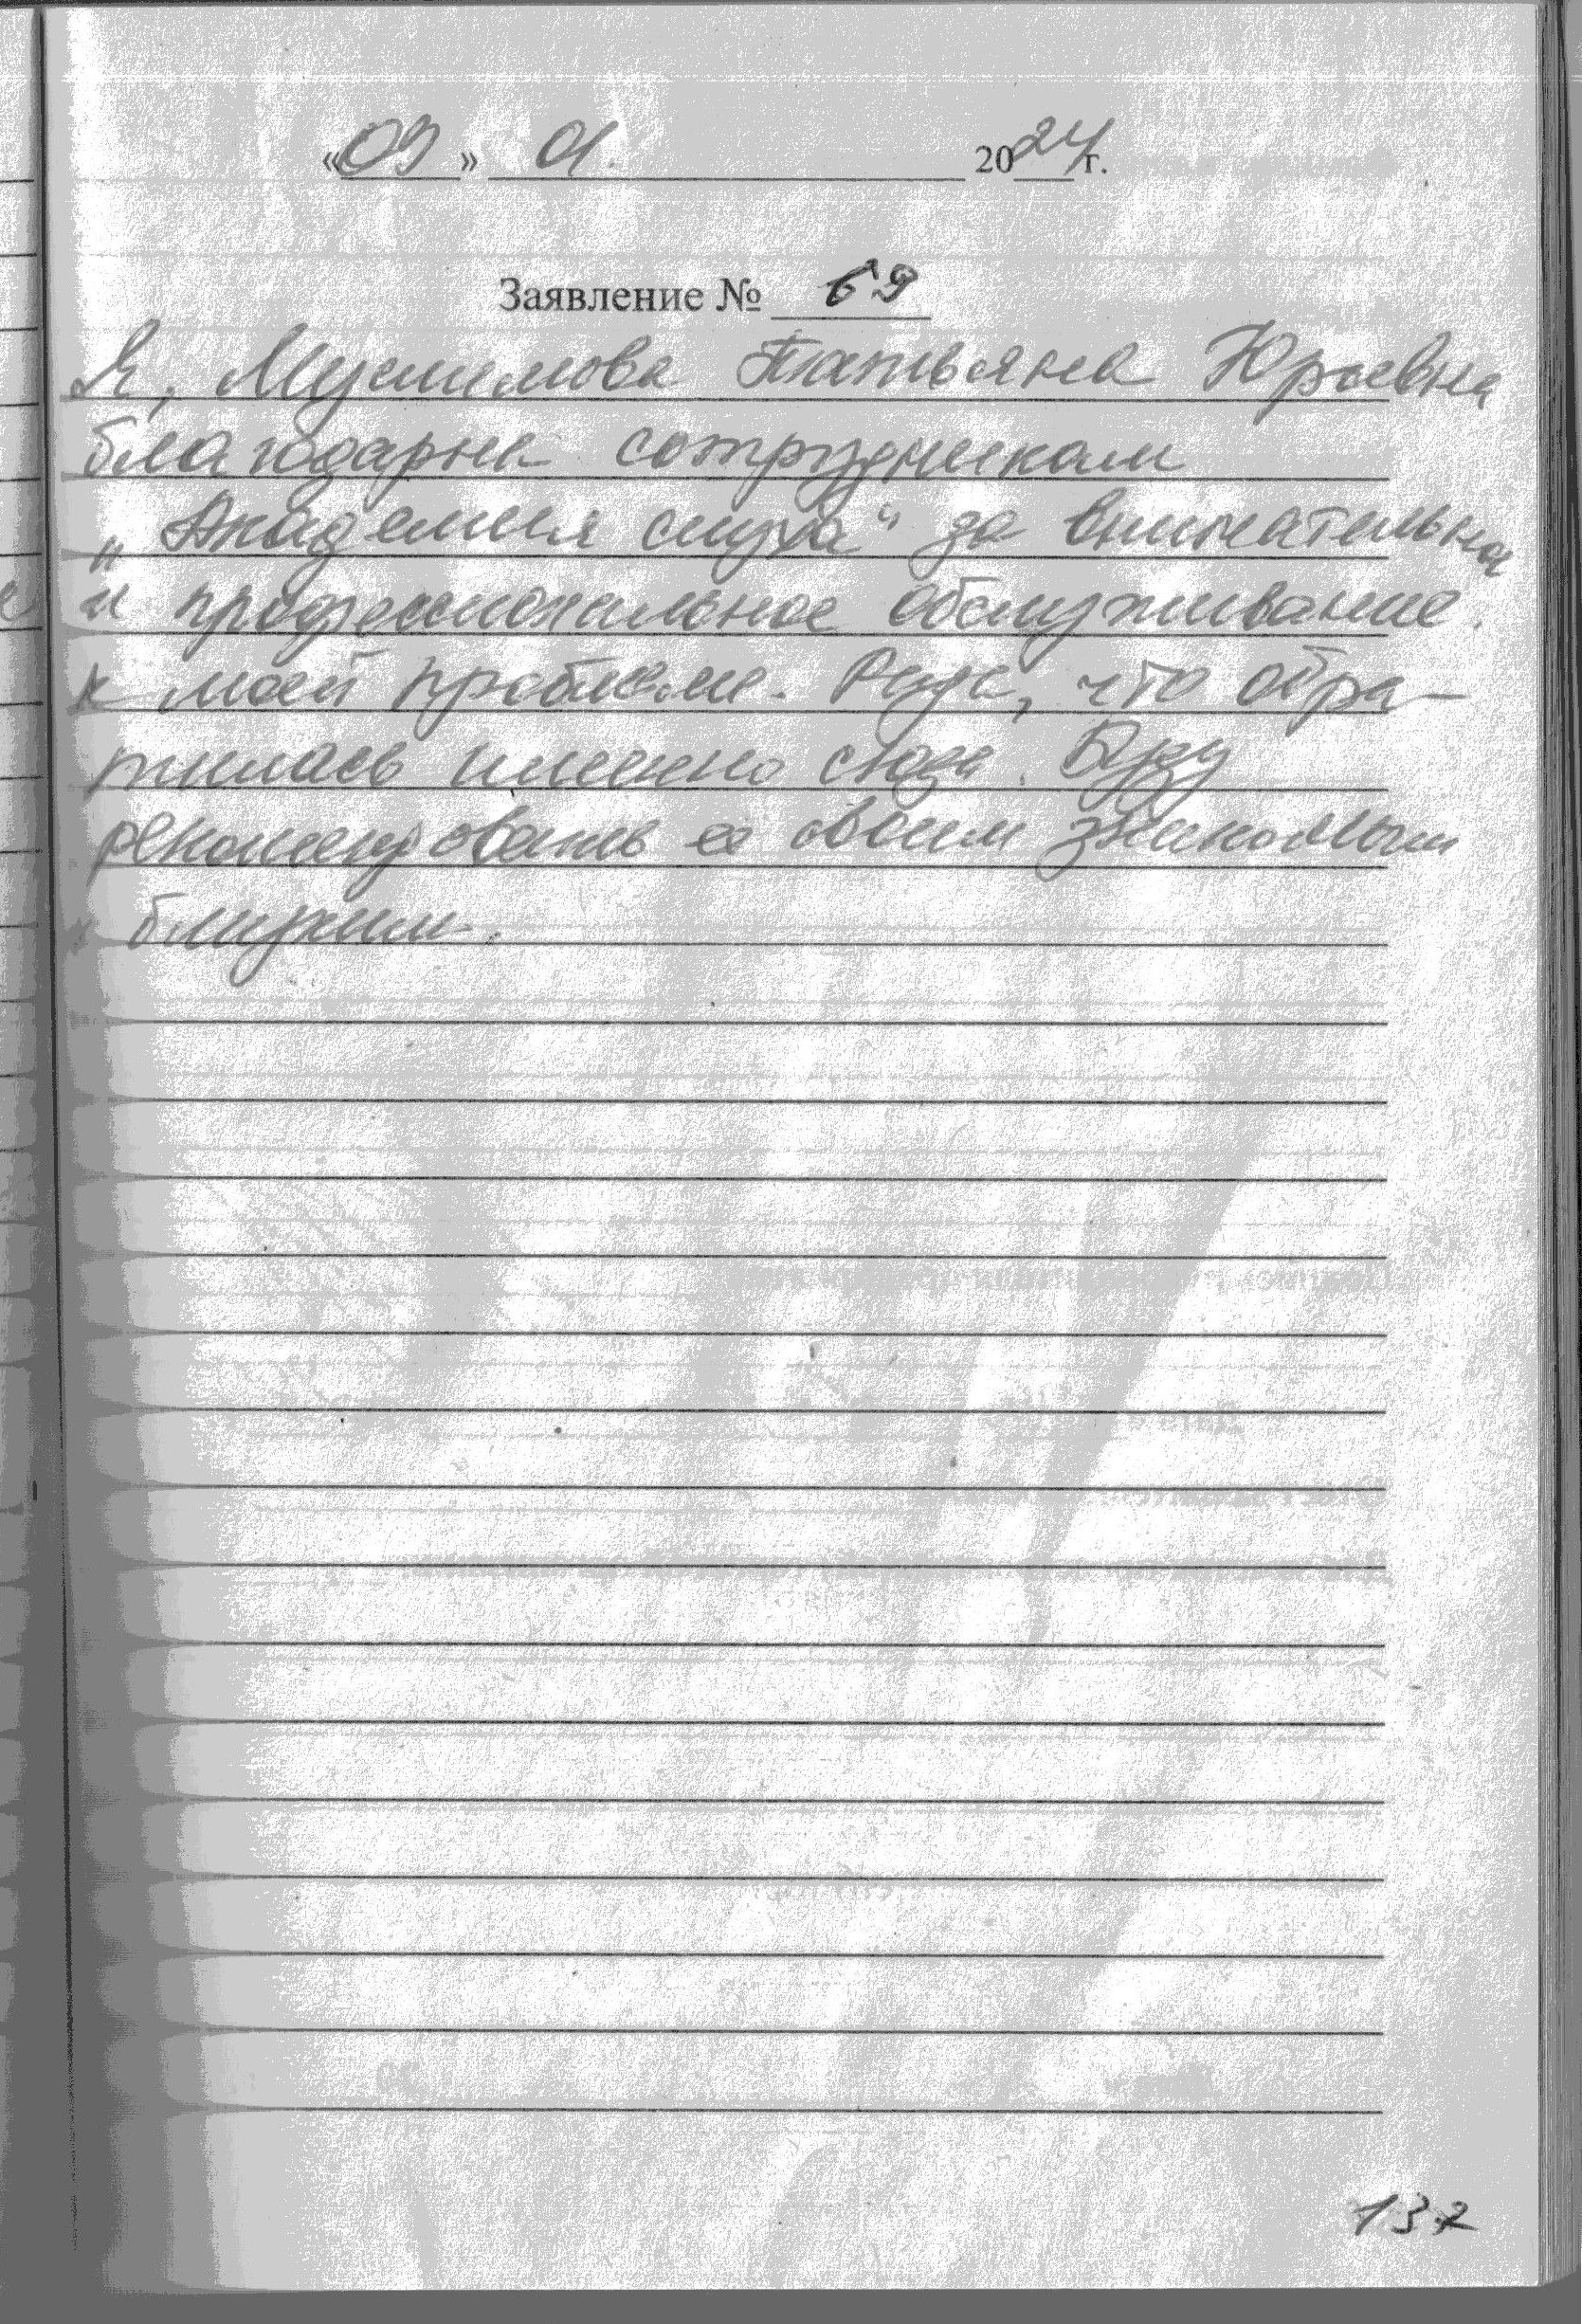 «09» 01. 2024 г.
Заявление № 69
Я, Муслимова Татьяна Юрьевна
благодарна сотрудникам
„Академия слуха“ за внимательное
и профессиональное обслуживание.
к моей проблеме. Рада, что обра-
тилась именно сюда. Буду
рекомендовать ее своим знакомым
и близким.
137